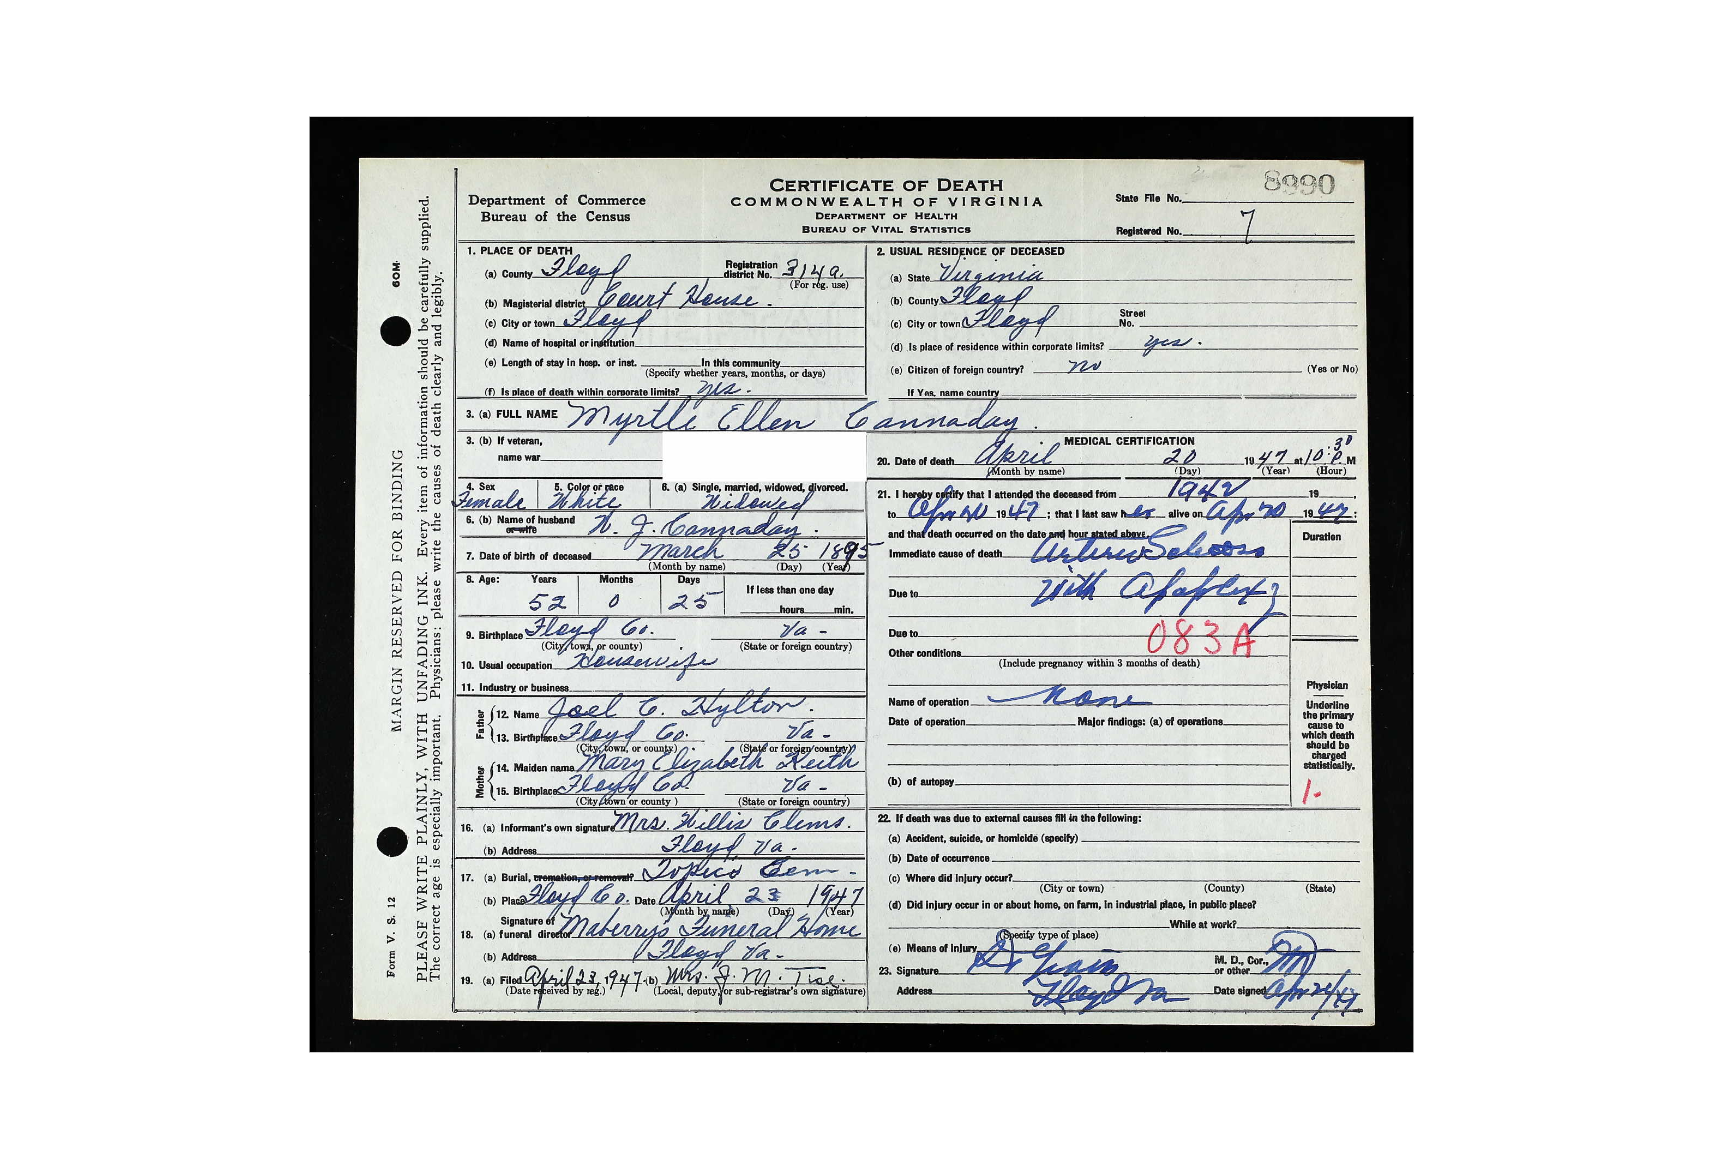 8990
CERTIFICATE OF DEATH
COMMONWEALTH OF VIRGINIA
DEPARTMENT OF HEALTH
BUREAU OF VITAL STATISTICS
Department of Commerce
Bureau of the Census
State File No.
Registered No. 7
MARGIN RESERVED FOR BINDING
60M
Form V. S. 12
PLEASE WRITE PLAINLY, WITH UNFADING INK. Every item of information should be carefully supplied.
The correct age is especially important. Physicians: please write the causes of death clearly and legibly.
1. PLACE OF DEATH
(a) County Floyd Registration district No. 314a.
(For reg. use)
(b) Magisterial district Court House.
(c) City or town Floyd
(d) Name of hospital or institution
(e) Length of stay in hosp. or inst. In this community
(Specify whether years, months, or days)
(f) Is place of death within corporate limits? yes.
2. USUAL RESIDENCE OF DECEASED
(a) State Virginia
(b) County Floyd
(c) City or town Floyd Street No.
(d) Is place of residence within corporate limits? yes.
(e) Citizen of foreign country? no (Yes or No)
If Yes, name country
3. (a) FULL NAME Myrtle Ellen Cannaday.
3. (b) If veteran,
name war
4. Sex 5. Color or race 6. (a) Single, married, widowed, divorced.
Female White Widowed
6. (b) Name of husband or wife J. Cannaday.
7. Date of birth of deceased March 25 1895
(Month by name) (Day) (Year)
8. Age: Years Months Days If less than one day
52 0 25 hours min.
9. Birthplace Floyd Co. Va-
(City, town, or county) (State or foreign country)
10. Usual occupation Housewife
11. Industry or business
Father
12. Name Joel C. Hylton.
13. Birthplace Floyd Co. Va-
(City, town, or county) (State or foreign country)
Mother
14. Maiden name Mary Elizabeth Keith
15. Birthplace Floyd Co. Va-
(City, town or county) (State or foreign country)
16. (a) Informant's own signature Mrs. Willis Clems.
(b) Address Floyd Va-
17. (a) Burial, cremation, or removal? Topico Cem-
(b) Place Floyd Co. Date April 23 1947
(Month by name) (Day) (Year)
Signature of
18. (a) funeral director Maberry's Funeral Home
(b) Address Floyd Va-
19. (a) Filed April 23, 1947 (b) Mrs. J. M.
(Date received by reg.) (Local, deputy, or sub-registrar's own signature)
MEDICAL CERTIFICATION
20. Date of death April 20 1947 at 10:30 P. M
(Month by name) (Day) (Year) (Hour)
21. I hereby certify that I attended the deceased from 1942 19
to Apr 20 1947; that I last saw her alive on Apr 20 1947;
and that death occurred on the date and hour stated above.
Duration
Immediate cause of death
Due to with Apoplexy
Due to
083A
Other conditions
(Include pregnancy within 3 months of death)
Name of operation none
Date of operation Major findings: (a) of operations
(b) of autopsy
Physician
Underline
the primary
cause to
which death
should be
charged
statistically.
1-
22. If death was due to external causes fill in the following:
(a) Accident, suicide, or homicide (specify)
(b) Date of occurrence
(c) Where did injury occur?
(City or town) (County) (State)
(d) Did injury occur in or about home, on farm, in industrial place, in public place?
While at work?
(Specify type of place)
(e) Means of injury
23. Signature M. D., Cor., or other
Address Floyd Va Date signed